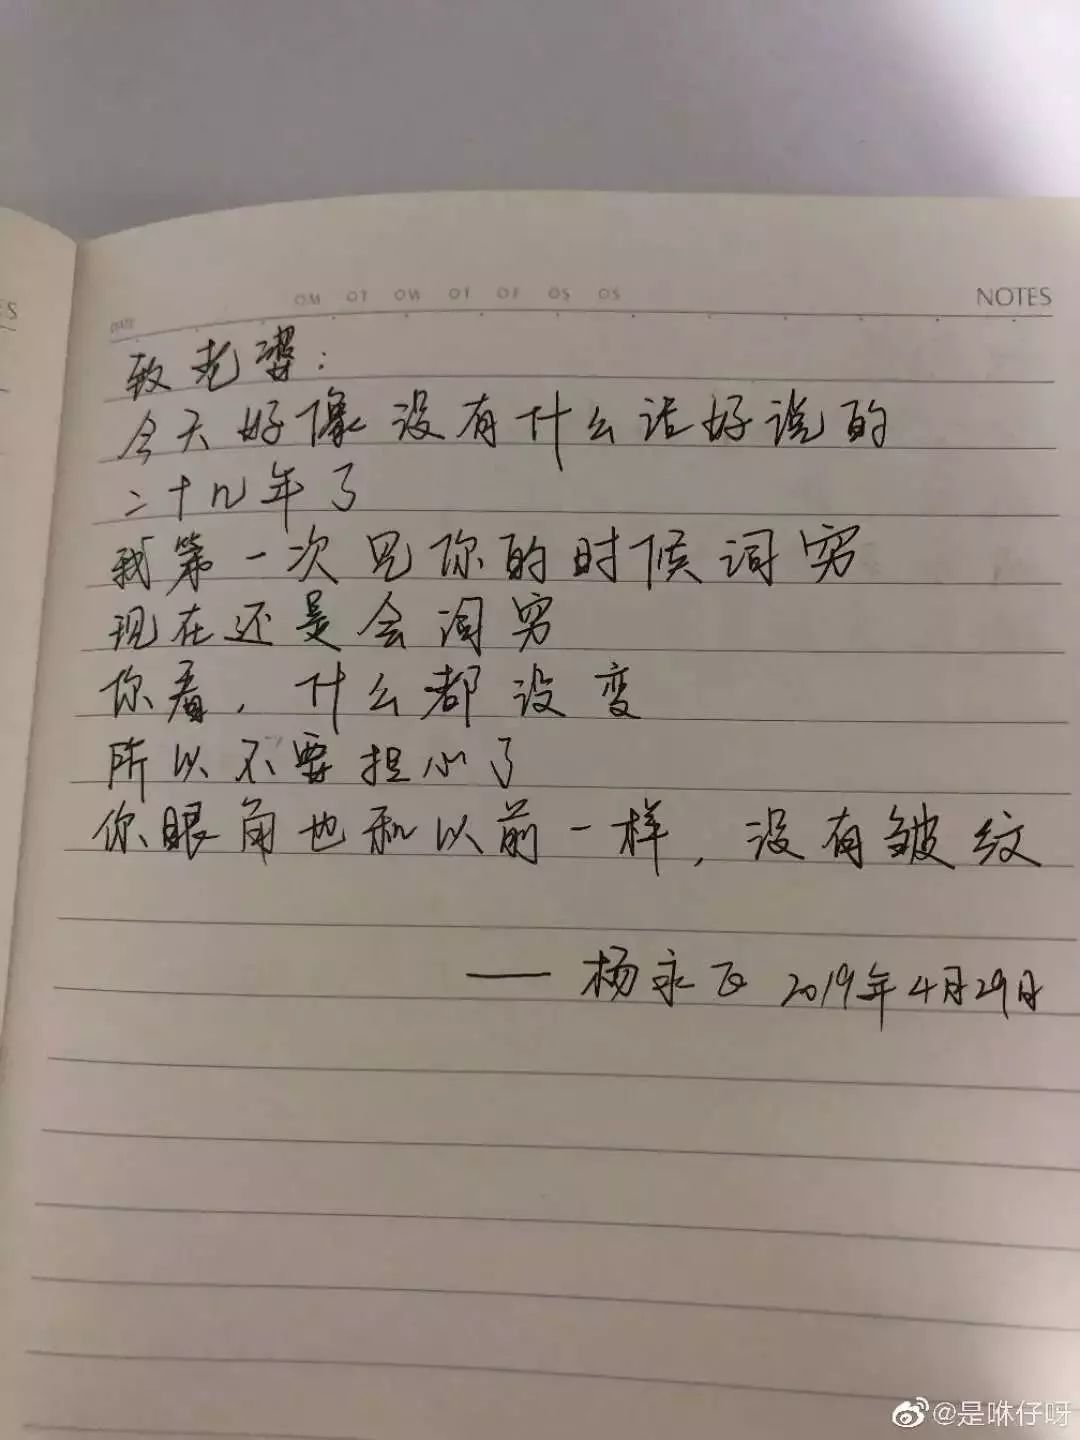 DATE
OM OT OW OT OF OS OS
NOTES
致老婆：
今天好像没有什么话好说的
二十几年了
我第一次见你的时候词穷
现在还是会词穷
你看，什么都没变
所以不要担心了
你眼角也和以前一样，没有皱纹
——杨永 2019年4月29日
@是咻仔呀